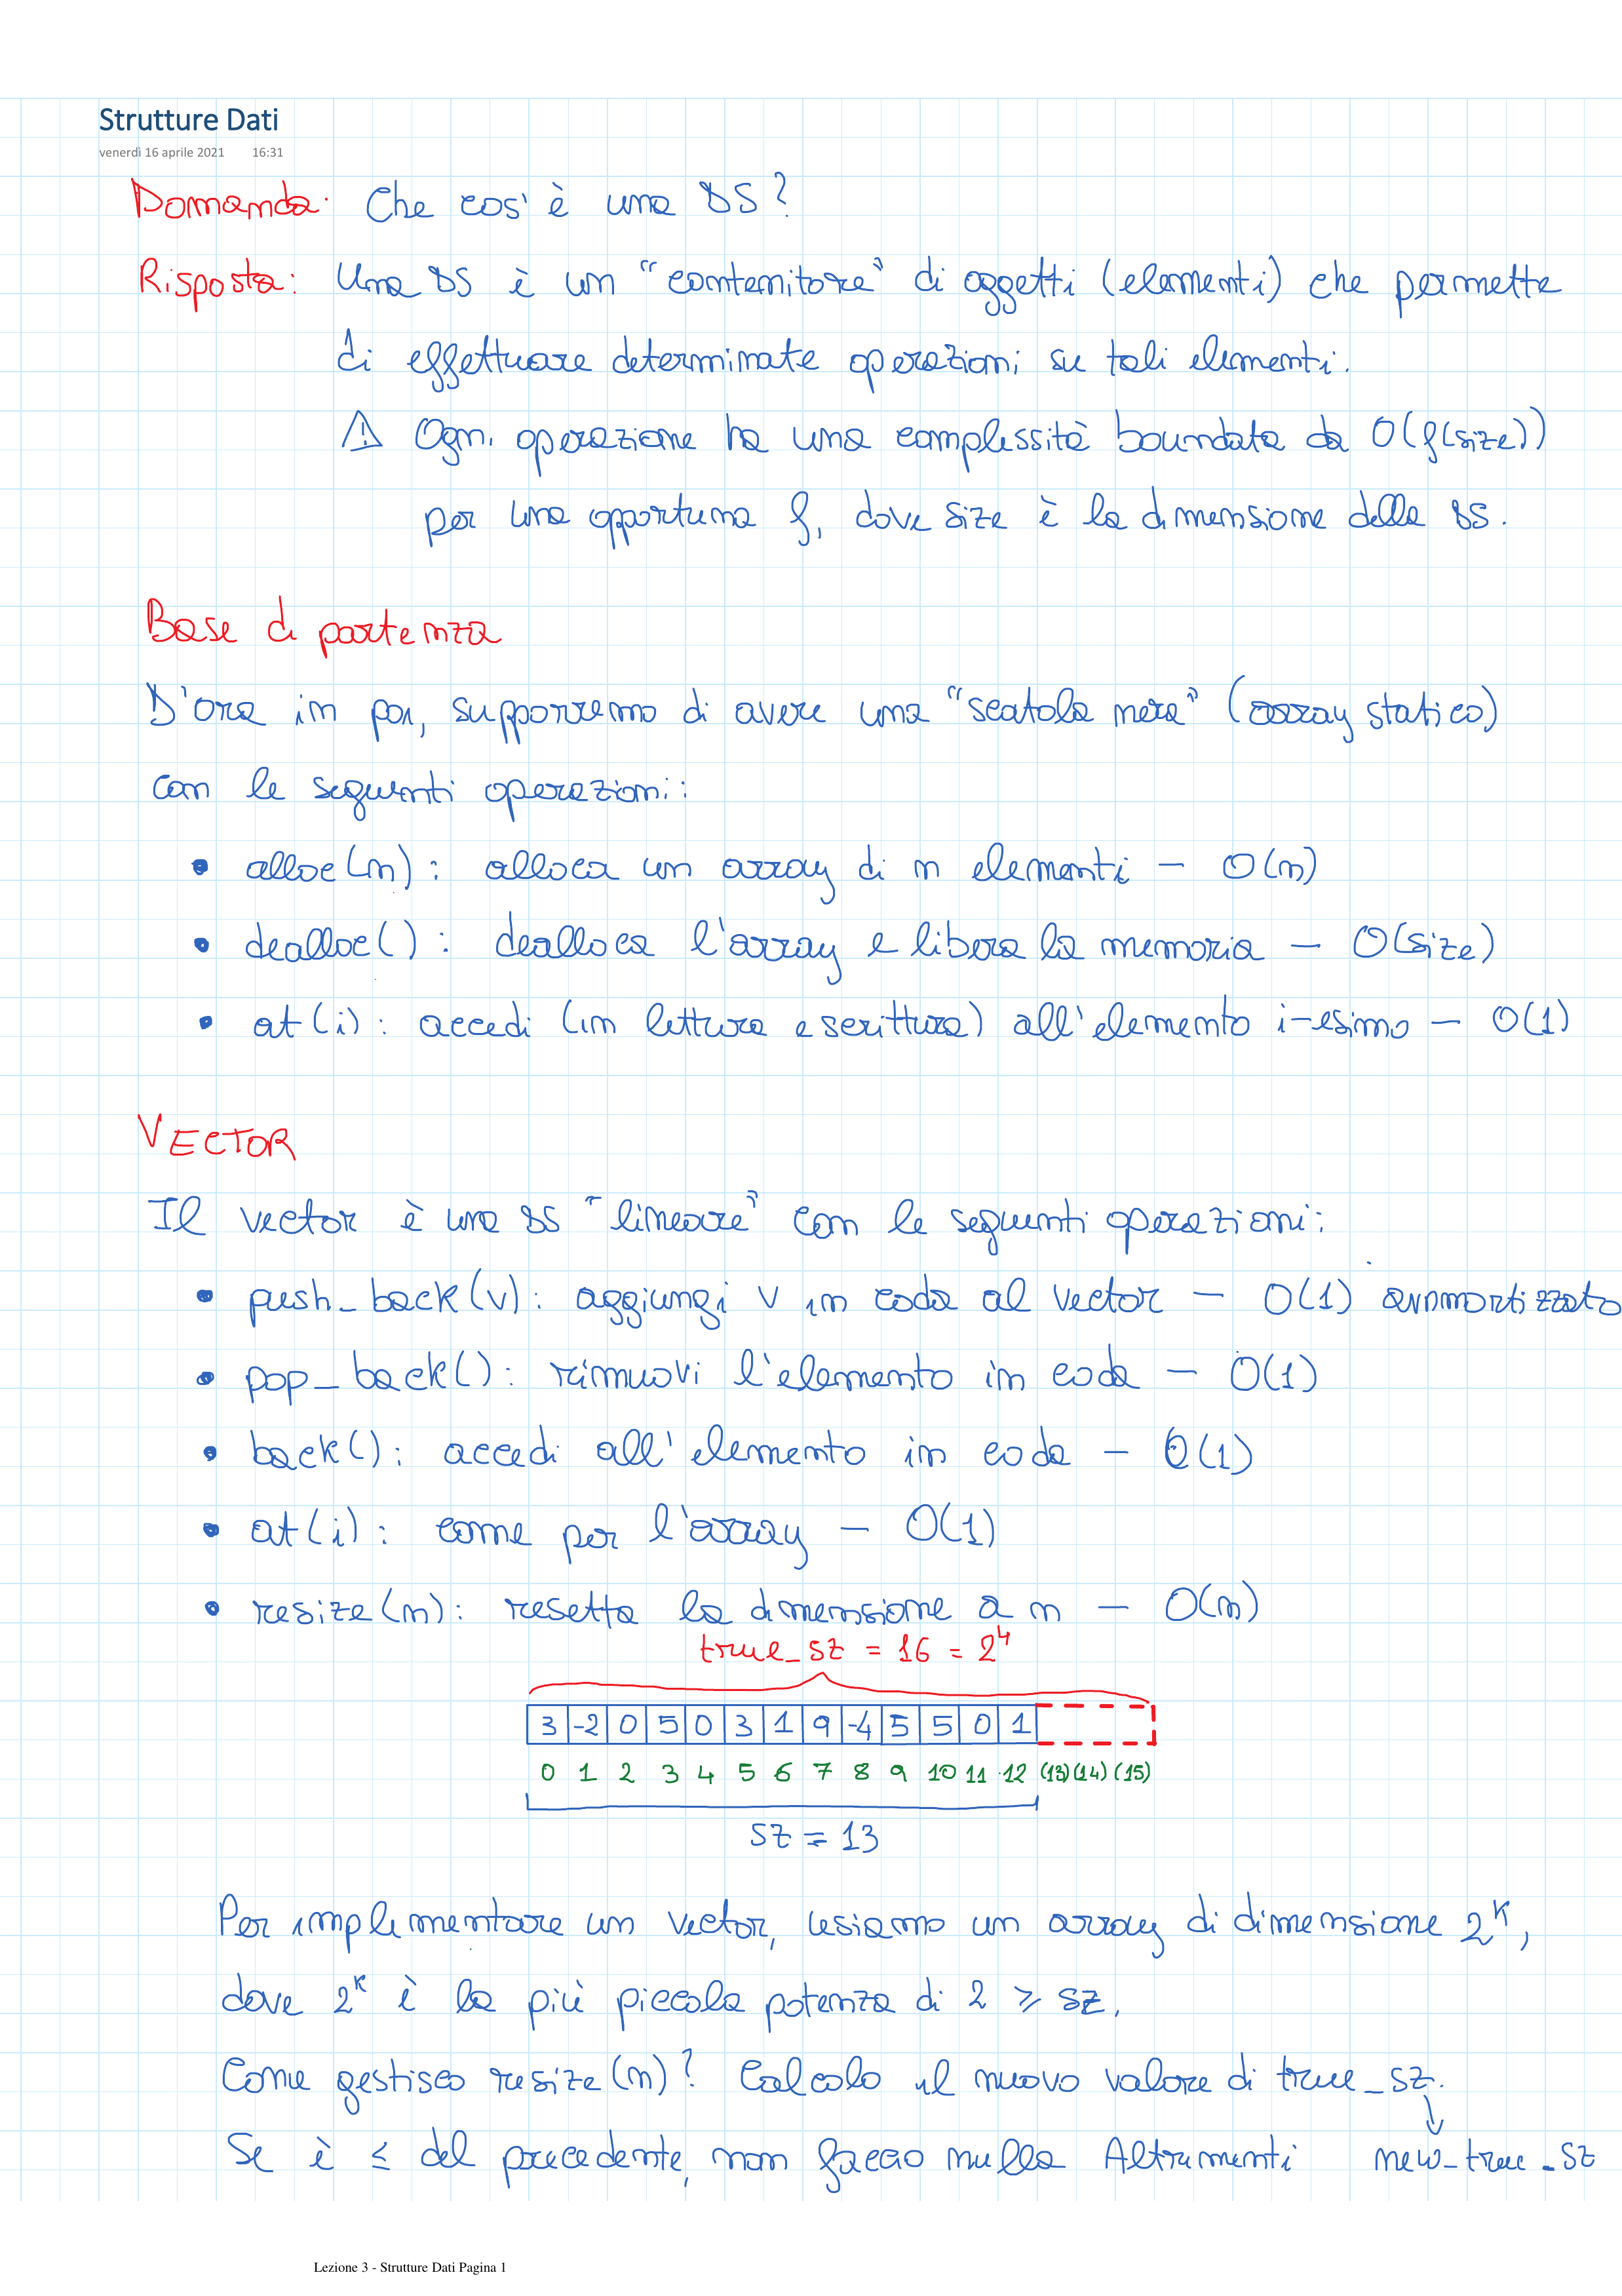 Strutture Dati
venerdì 16 aprile 2021 16:31
Domanda: Che cos'è una DS?
Risposta: Una DS è un "contenitore" di oggetti (elementi) che permette
di effettuare determinate operazioni su tali elementi.
⚠ Ogni operazione ha una complessità boundata da O(f(size))
per una opportuna f, dove size è la dimensione della DS.
Base di partenza
D'ora in poi, supporremo di avere una "scatola nera" (array statico)
con le seguenti operazioni:
• alloc(n): alloca un array di n elementi - O(n)
• dealloc(): dealloca l'array e libera la memoria - O(size)
• at(i): accedi (in lettura e scrittura) all'elemento i-esimo - O(1)
VECTOR
Il vector è una DS "lineare" con le seguenti operazioni:
• push_back(v): aggiungi v in coda al vector - O(1) ammortizzato
• pop_back(): rimuovi l'elemento in coda - O(1)
• back(): accedi all'elemento in coda - O(1)
• at(i): come per l'array - O(1)
• resize(n): resetta la dimensione a n - O(n)
true_sz = 16 = 2⁴
3 -2 0 5 0 3 1 9 -4 5 5 0 1
0 1 2 3 4 5 6 7 8 9 10 11 12 (13) (14) (15)
sz = 13
Per implementare un vector, usiamo un array di dimensione 2ᴷ,
dove 2ᴷ è la più piccola potenza di 2 ≥ sz.
Come gestisco resize(n)? Calcolo il nuovo valore di true_sz.
↓
Se è ≤ del precedente, non faccio nulla Altrimenti new_true_sz
Lezione 3 - Strutture Dati Pagina 1